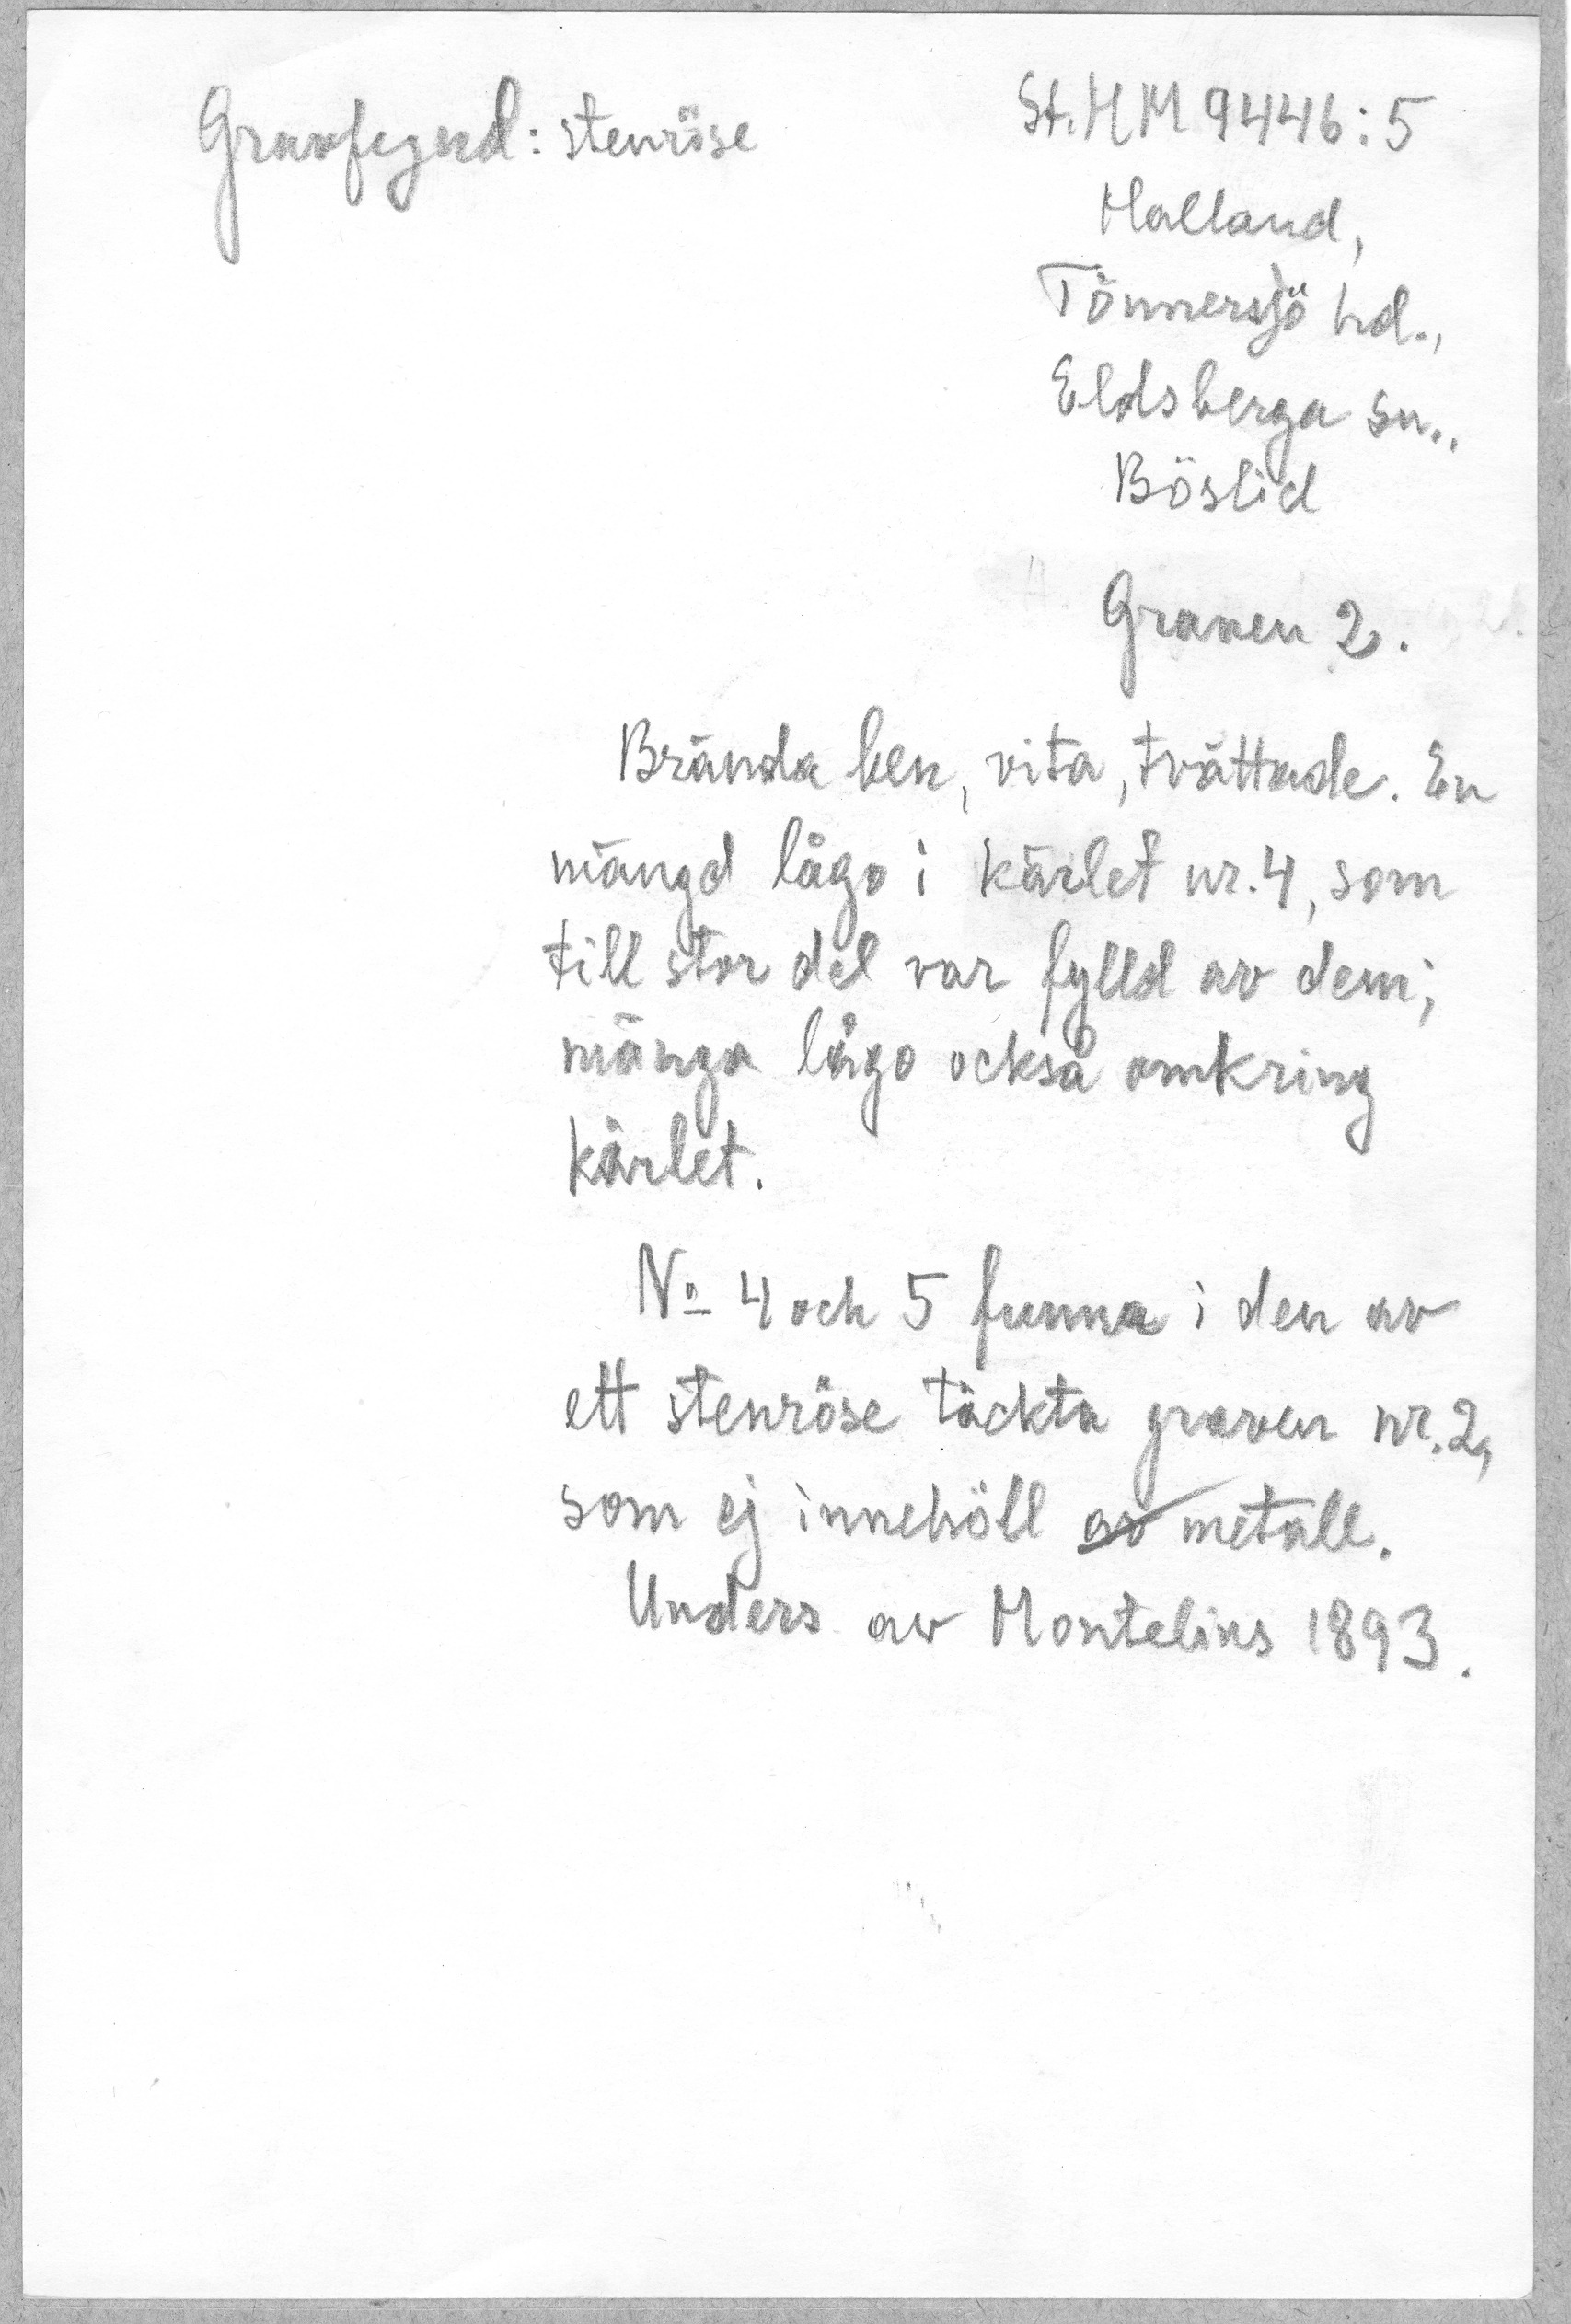 Gravfynd: stenröse
St.HM 9446:5
Halland,
Tönnersjö hd.,
Eldsberga sn.,
Böslid
Graven 2.
Brända ben, vita, tvättade. En
mängd lågo i kärlet nr.4, som
till stor del var fylld av dem;
många lågo också omkring
kärlet.
No 4 och 5 funna i den av
ett stenröse täckta graven nr.2,
som ej innehöll av metall.
Unders av Montelius 1893.